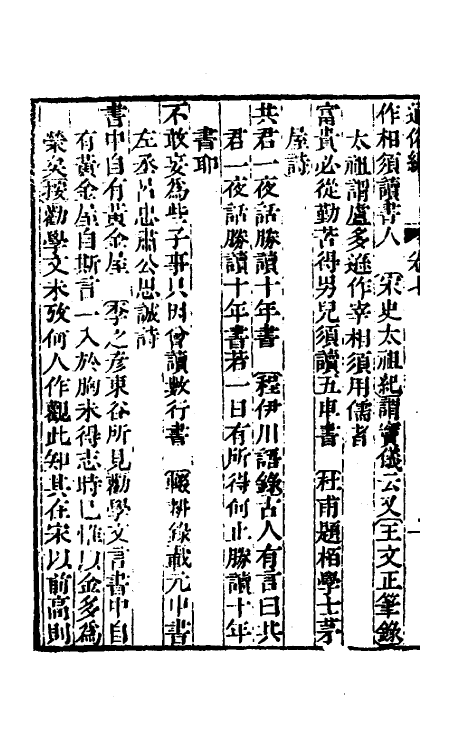 通俗編 卷七
作相須讀書人 宋史太祖紀謂竇儀云又王文正筆錄
太祖謂盧多遜作宰相須用儒者
富貴必從勤苦得男兒須讀五車書 杜甫題栢學士茅
屋詩
共君一夜話勝讀十年書 程伊川語錄古人有言曰共
君一夜話勝讀十年書若一日有所得何止勝讀十年
書耶
不敢妄爲些子事只因曾讀數行書 輟耕錄載元中書
左丞呂忠肅公思誠詩
書中自有黃金屋 李之彥東谷所見勸學文言書中自
有黃金屋自斯言一入於胸未得志時已惟以金多爲
榮矣按勸學文未攷何人作觀此知其在宋以前高則